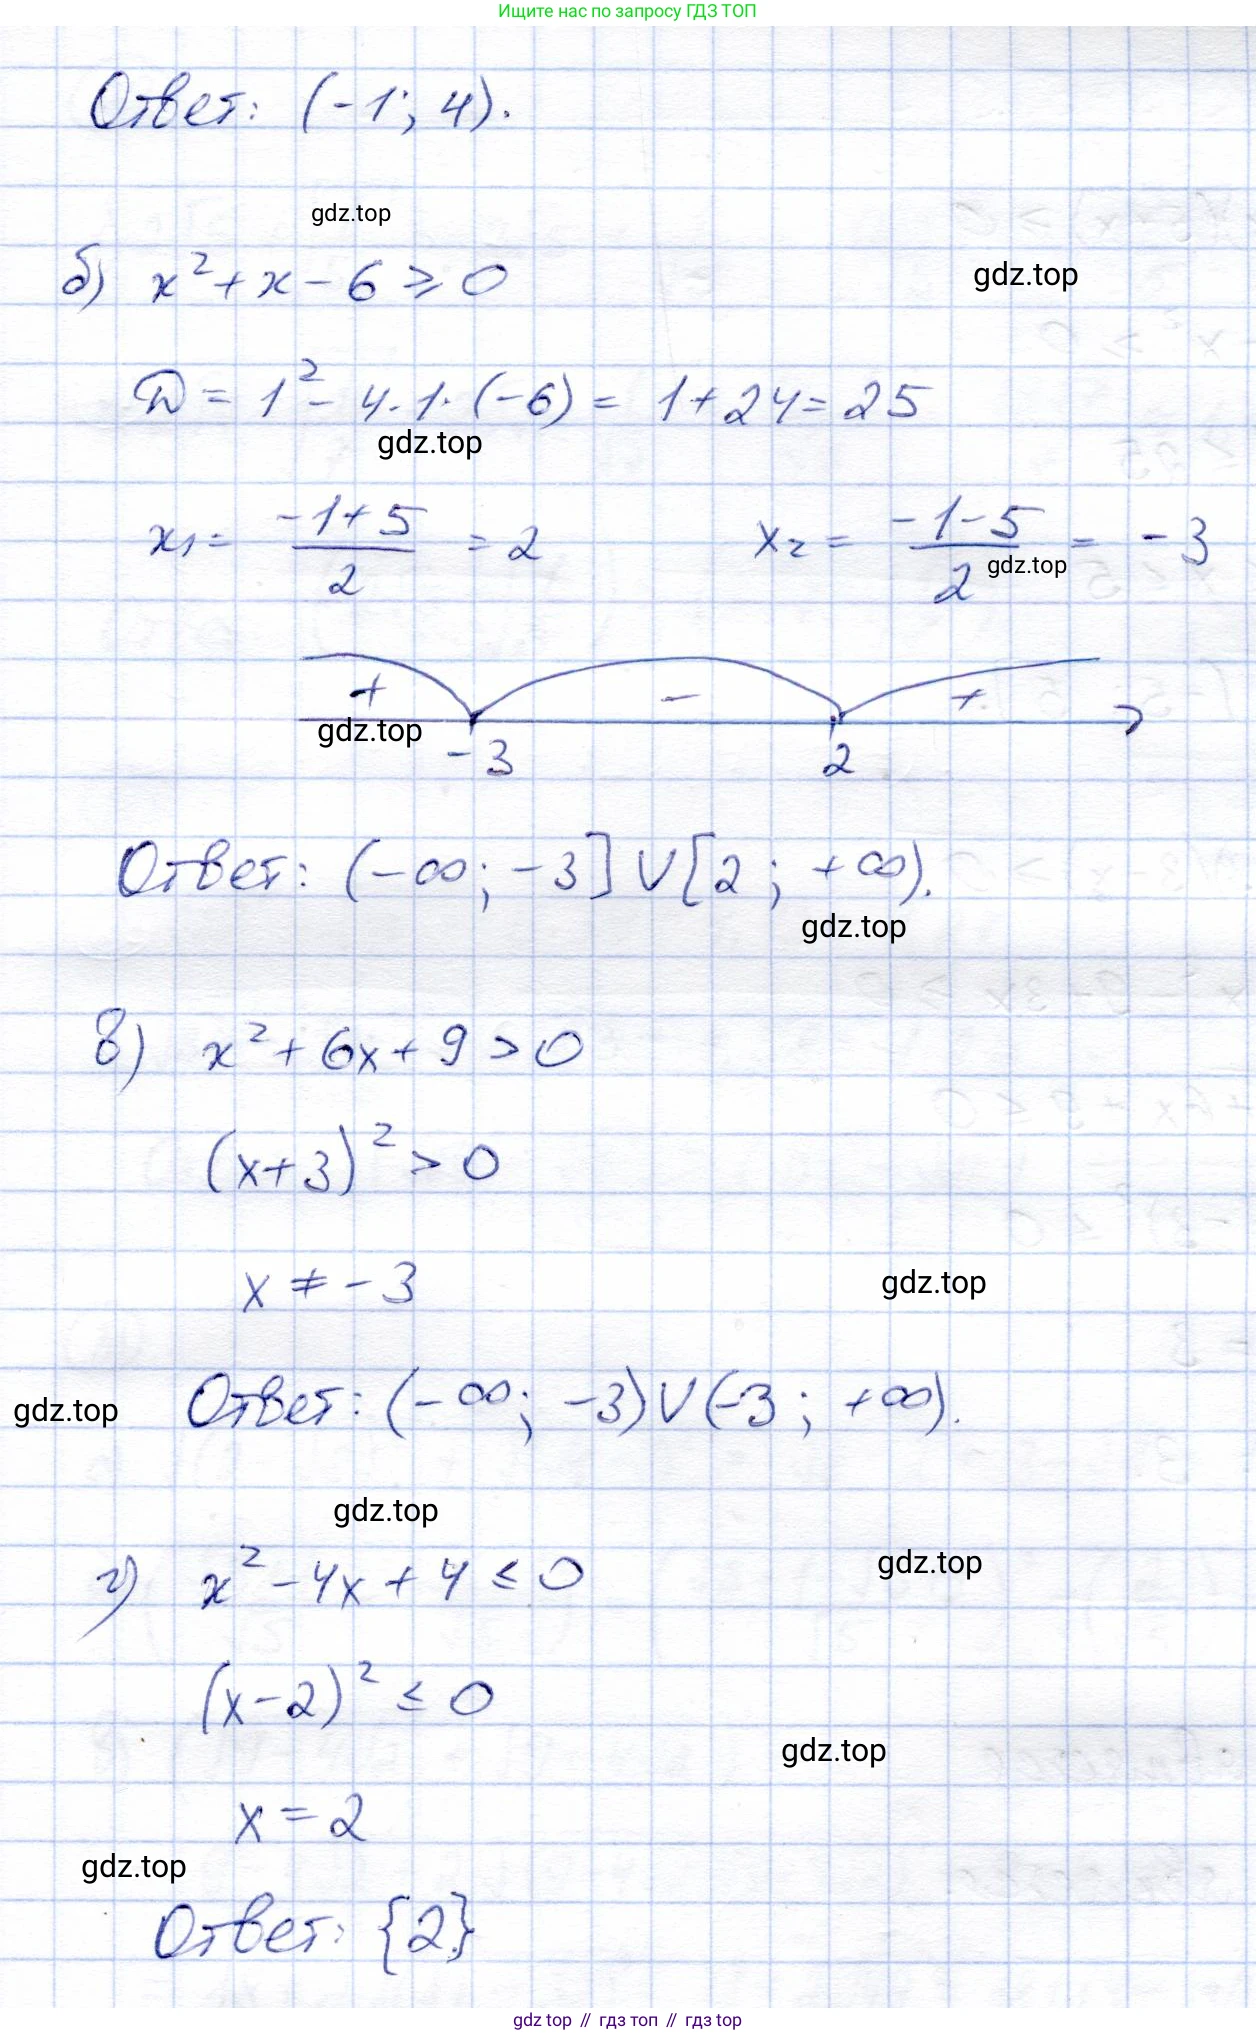 Ищите нас по запросу ГДЗ ТОП
Ответ: (-1; 4).
gdz.top
б) x² + x - 6 ⩾ 0
gdz.top
D = 1² - 4·1·(-6) = 1 + 24 = 25
gdz.top
x₁ = (-1+5)/2 = 2    x₂ = (-1-5)/2 = -3
gdz.top
+ - +
gdz.top
-3 2
Ответ: (-∞; -3] ∪ [2; +∞).
gdz.top
в) x² + 6x + 9 > 0
(x+3)² > 0
x ≠ -3
gdz.top
Ответ: (-∞; -3) ∪ (-3; +∞).
gdz.top
gdz.top
г) x² - 4x + 4 ≤ 0
gdz.top
(x-2)² ≤ 0
gdz.top
x = 2
gdz.top
Ответ: {2}
gdz top // гдз топ // гдз top